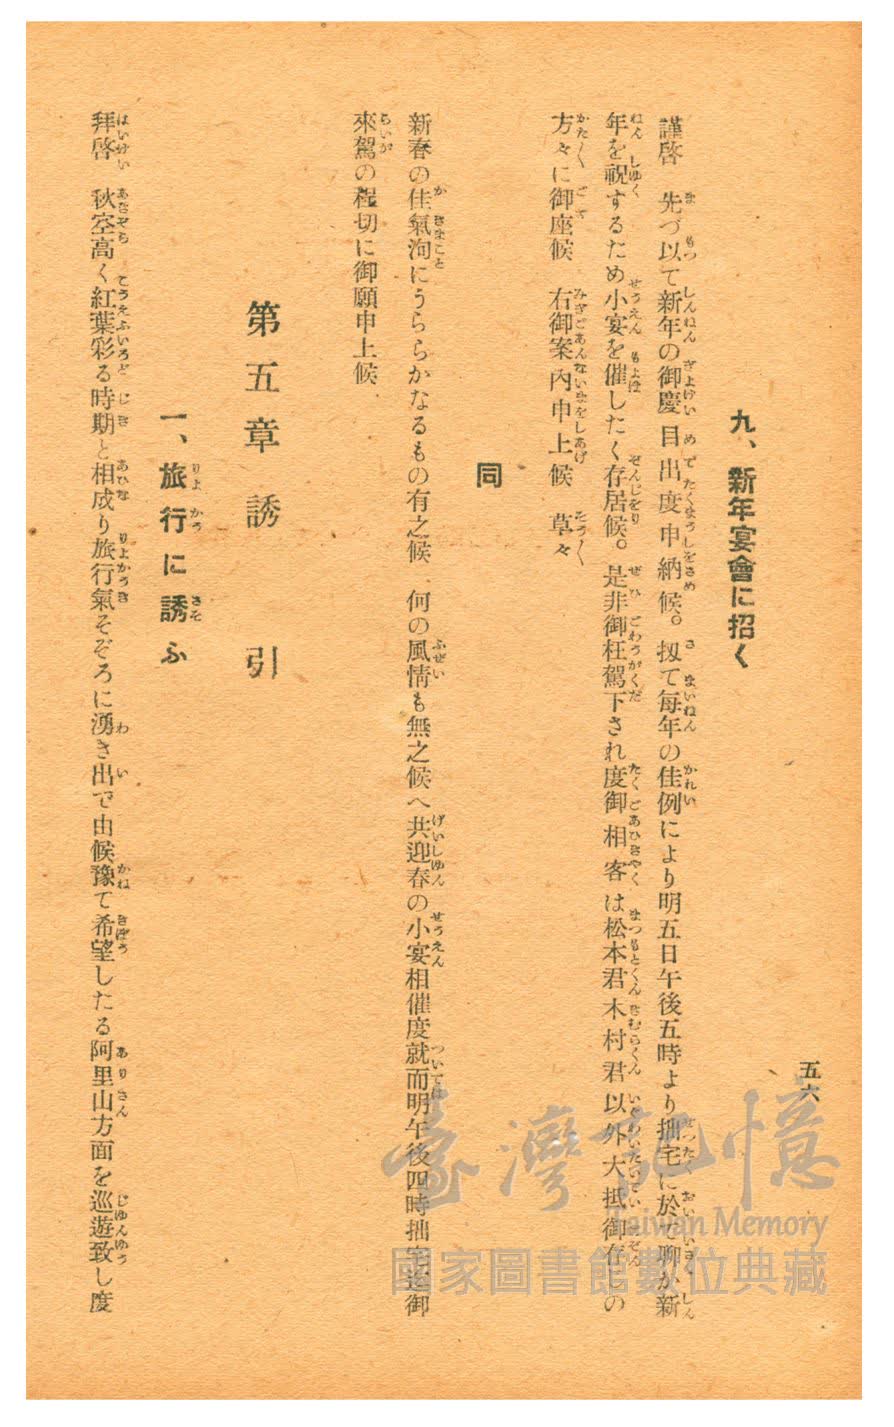 五六
九、新年宴會に招く
謹啓　先づ以て新年の御慶目出度申納候。扨て毎年の佳例により明五日午後五時より拙宅に於て聊か新
年を祝するため小宴を催したく存居候。是非御枉駕下され度御相客は松本君木村君以外大抵御存じの
方々に御座候　右御案內申上候　草々
同
新春の佳氣洵にうららかなるもの有之候、何の風情も無之候へ共迎春の小宴相催度就而明午後四時拙宅迄御
來駕の程切に御願申上候
第五章　誘　引
一、旅行に誘ふ
拜啓　秋空高く紅葉彩る時期と相成り旅行氣そぞろに湧き出で由候豫て希望したる阿里山方面を巡遊致し度
臺灣記憶
Taiwan Memory
國家圖書館數位典藏